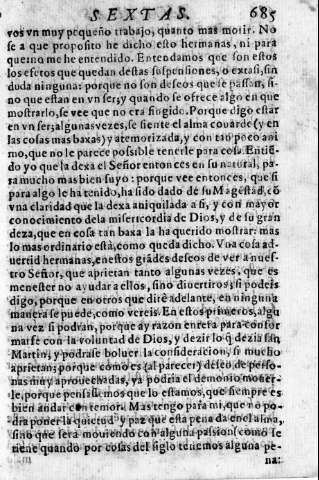 SEXTAS. 685
vos vn muy pequeño trabajo, quanto mas morir. No
se a que proposito he dicho esto hermanas, ni para
que: no me he entendido. Entendamos que son estos
los efetos que quedan destas suspensiones, o extasi, sin
duda ninguna: porque no son deseos que se passan, si-
no que estan en vn ser; y quando se ofrece algo en que
mostrarlo, se vee que no era fingido. Porque digo estar
en vn ser; algunas vezes, se siente el alma couarde (y en
las cosas mas baxas) y atemorizada, y con tan poco ani
mo, que no le parece possible tenerle para cosa. Entiē-
do yo que la dexa el Señor entonces en su natural, pa-
ra mucho mas bien suyo: porque vee entonces, que si
para algo le ha tenido, ha sido dado de su Magestad, cō
vna claridad que la dexa aniquilada a si, y con mayor
conocimiento dela misericordia de Dios, y de su gran
deza, que en cosa tan baxa la ha querido mostrar: mas
lo mas ordinario està, como queda dicho. Vna cosa ad-
uertid hermanas, en estos grādes deseos de ver a nues-
tro Señor, que aprietan tanto algunas vezes, que es
menester no ayudar a ellos, sino diuertiros; si podeis
digo, porque en otros que dirè adelante, en ninguna
manera se puede, como vereis. En estos primeros, algu
na vez si podran, porque ay razon entera para confor
marse con la voluntad de Dios, y dezir lo q̄ dezia san
Martin; y podrase boluer la consideracion, si mucho
aprietan; porque como es (al parecer) deseo de perso-
nas muy aprouechadas, ya podria el demonio mouer-
le, porque pensassemos que lo estamos, que siempre es
bien andar con temor. Mas tengo para mi, que no po-
dra poner la quietud y paz que esta pena da en el alma,
sino que serà mouiendo con alguna passion (como se
tiene quando por cosas del siglo tenemos alguna pe-
na: